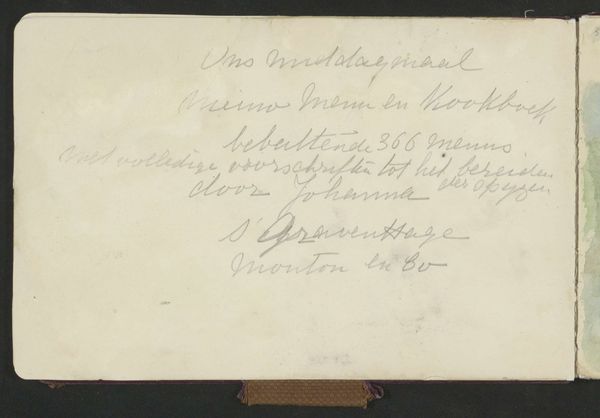 Ons middagmaal
nieuw Menu en Kookboek
bebattende 366 menus
met volledige voorschriften tot het bereiden
der spijzen
door Johanna
s' Gravenhage
Mouton en Co